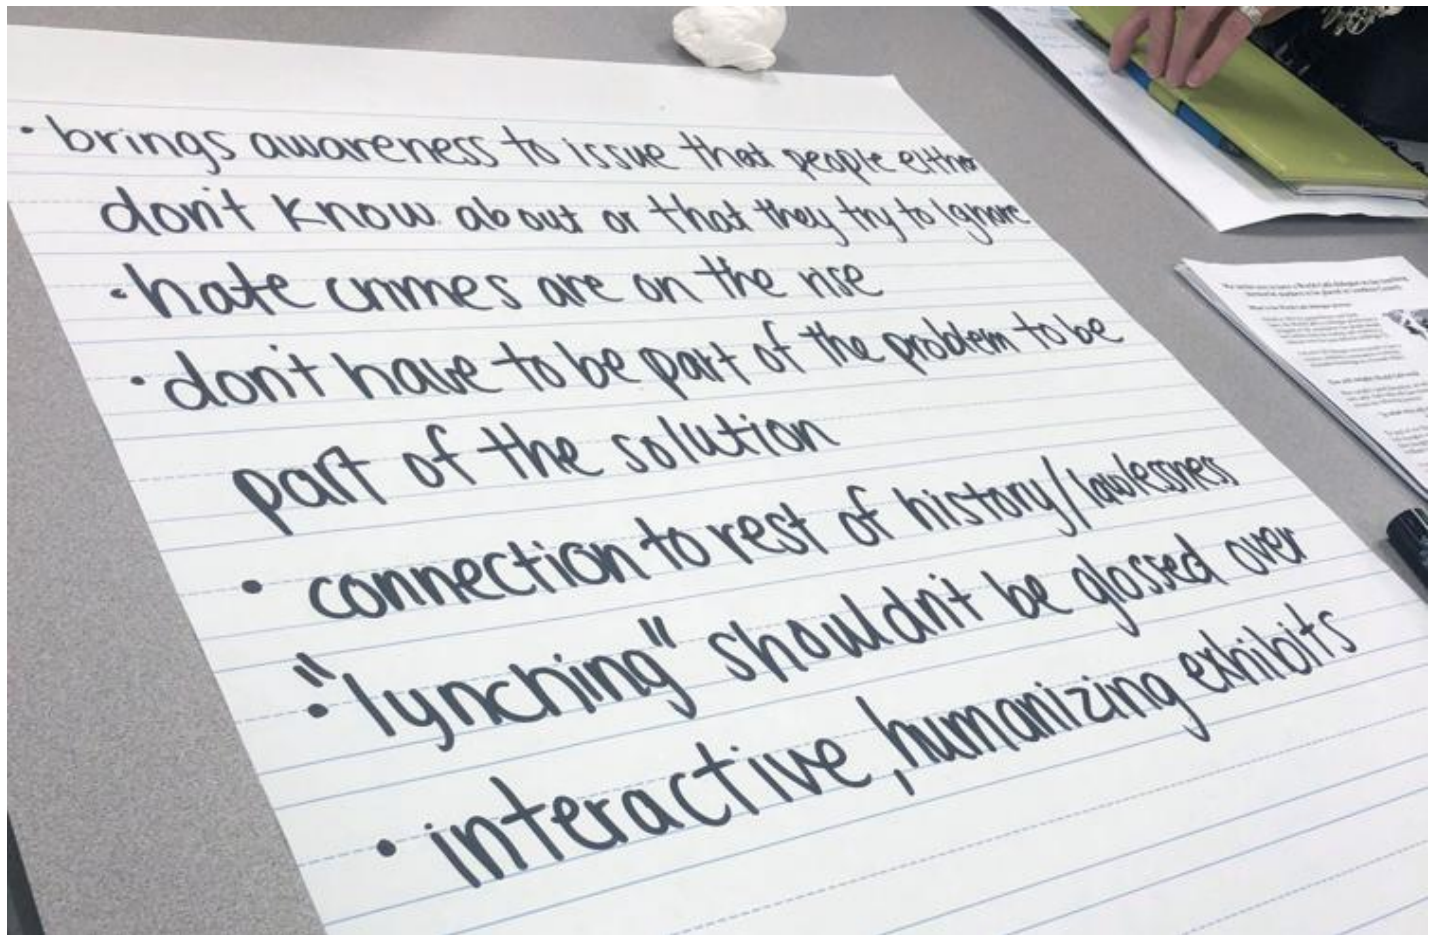 • brings awareness to issue that people either
don't know about or that they try to Ignore
• hate crimes are on the rise
• don't have to be part of the problem to be
part of the solution
• connection to rest of history/lawlessness
• "lynching" shouldn't be glossed over
• interactive, humanizing exhibits